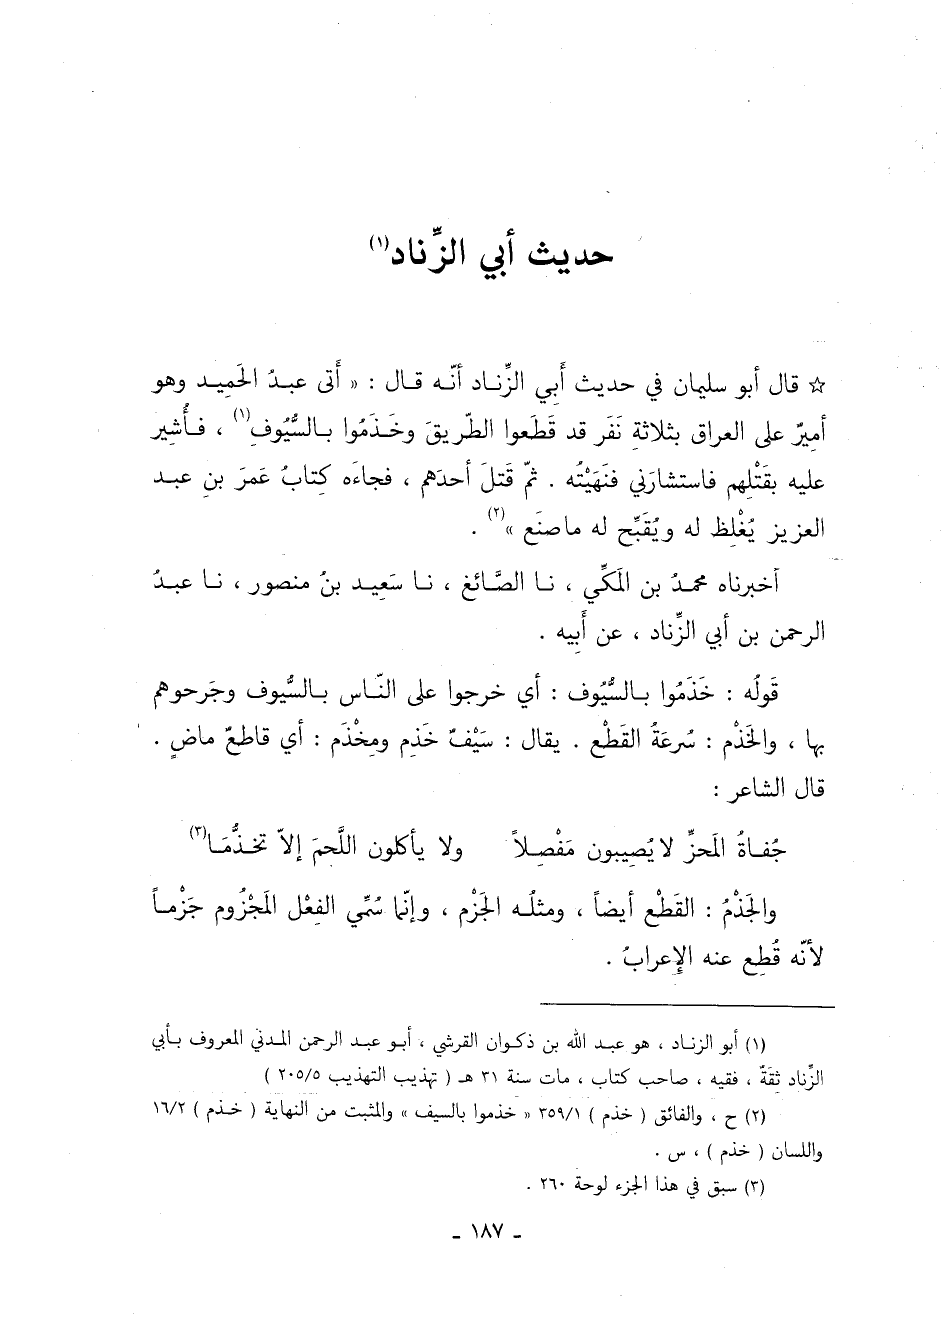 حديث أبي الزِّناد(١)
☆ قال أبو سليمان في حديث أَبِي الزِّنـاد أنّـه قـال : « أَتى عبـدُ الحَمِيـد وهو
أميرٌ على العراق بثلاثةِ نَفَر قد قَطَعوا الطّريقَ وخَـذَمُوا بـالسُّيُوفِ(١) ، فـأُشِير
عليه بقَتْلِهم فاستشارَنِي فنَهَيْتُه . ثمّ قَتلَ أحدَهم ، فجاءَه كِتابُ عُمَرَ بنِ عبـد
العزيز يُغْلِظ له ويُقَبِّح له ماصنَع »(٢) .
أخبرناه محمدُ بن المَكِّي ، نـا الصَّائغ ، نـا سَعِيـد بنُ منصور ، نـا عبـدُ
الرحمن بن أبي الزِّناد ، عن أَبِيه .
قَولُه : خَذَمُوا بـالسُّيُوف : أي خرجوا على النّاس بـالسُّيوف وجَرحوهم
بها ، والخَذْم : سُرعَةُ القَطْع . يقال : سَيْفٌ خَذِم ومِخْذَم : أي قاطعٌ ماضٍ .
قال الشاعر :
جُفـاةُ المَحزِّ لايُصِيبون مَفْصِـلاً ولا يأكلون اللَّحمَ إلاّ تخـذُّمَـا(٣)
والجَذْمُ : القَطْع أيضاً ، ومثلُـه الجَزْم ، وإنّا سُمِّي الفِعْل المَجْزُوم جَزْمـاً
لأنّه قُطِع عنه الإِعرابُ .
(١) أبو الزناد ، هو عبد الله بن ذكوان القرشي ، أبـو عبـد الرحمن المـدني المعروف بـأبي
الزِّناد ثِقَةٌ ، فقيه ، صاحب كتاب ، مات سنة ٣١ هـ ( تهذيب التهذيب ٢٠٥/٥ )
(٢) ح ، والفائق ( خذم ) ٣٥٩/١ « خذموا بالسيف » والمثبت من النهاية ( خـذم ) ١٦/٢
واللسان ( خذم ) ، س .
(٣) سبق في هذا الجزء لوحة ٢٦٠ .
ـ ١٨٧ ـ